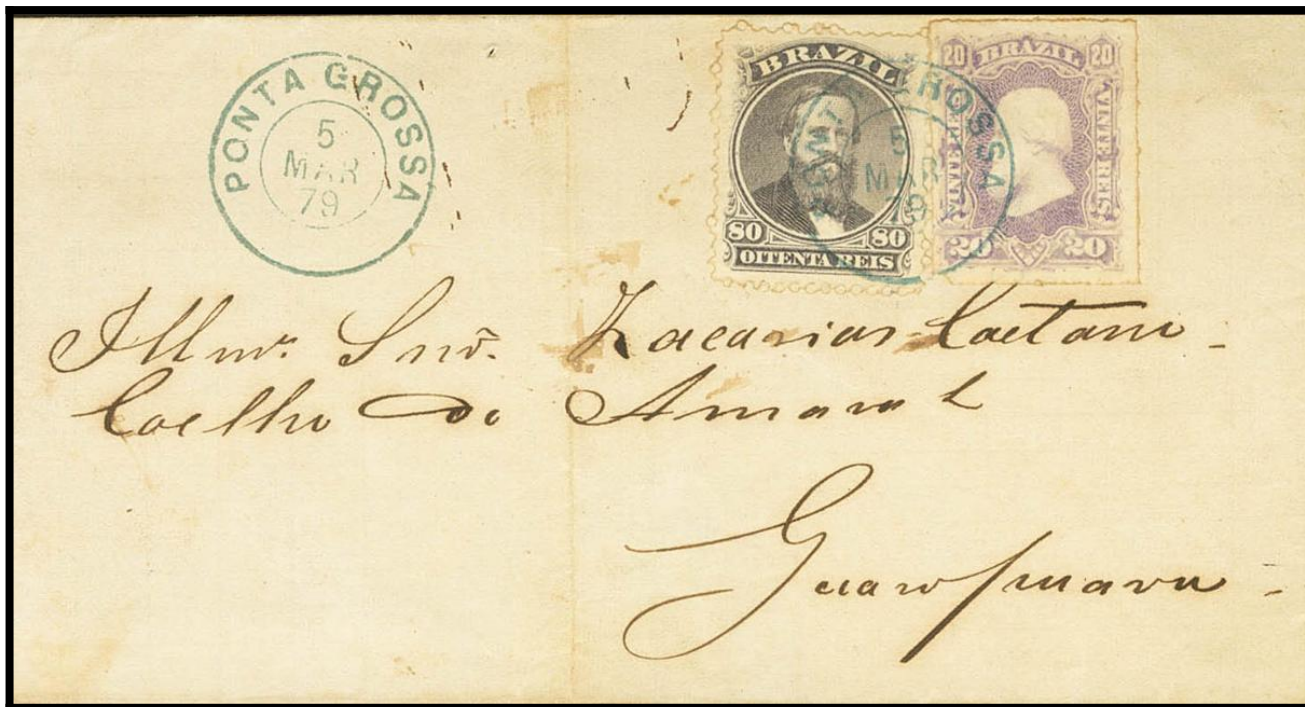 PONTA GROSSA
5
MAR
79
BRAZIL
80 80
OITENTA REIS
PONTA GROSSA
5
MAR
79
20 BRAZIL 20
VINTE REIS VINTE REIS
20 20
Illmo. Snr. Zacarias Caetano
Coelho do Amaral
Guarapuava